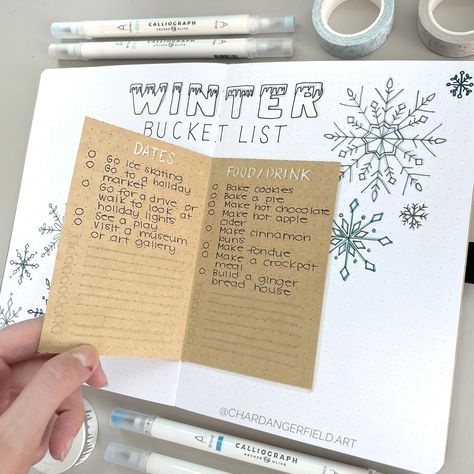 CALLIGRAPH
ARCHER & OLIVE
CALLIGRAPH
ARCHER & OLIVE
WINTER
BUCKET LIST
DATES
Go ice skating
Go to a holiday
market
Go for a drive or
walk to look at
holiday lights
See a play
Visit a museum
or art gallery
FOOD/DRINK
Bake cookies
Bake a pie
Make hot chocolate
Make hot apple
cider
Make cinnamon
buns
Make fondue
Make a crockpot
meal
Build a ginger
bread house
@CHARDANGERFIELD.ART
CALLIGRAPH
ARCHER & OLIVE